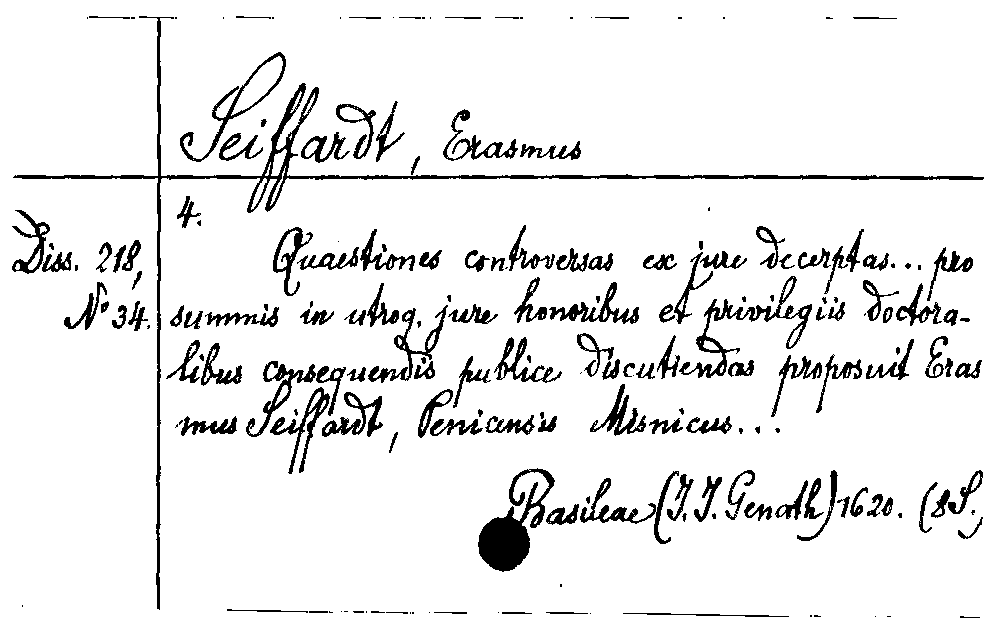 Seiffardt, Erasmus
4.
Diss. 218,
No 34.
Quaestiones controversas ex jure decerptas... pro
summis in utroq. jure honoribus et privilegiis doctora-
libus consequendis publice discutiendas proposuit Eras
mus Seiffardt, Penicensis Misnicus...
Basileae (J. J. Genath) 1620. (8 S.)